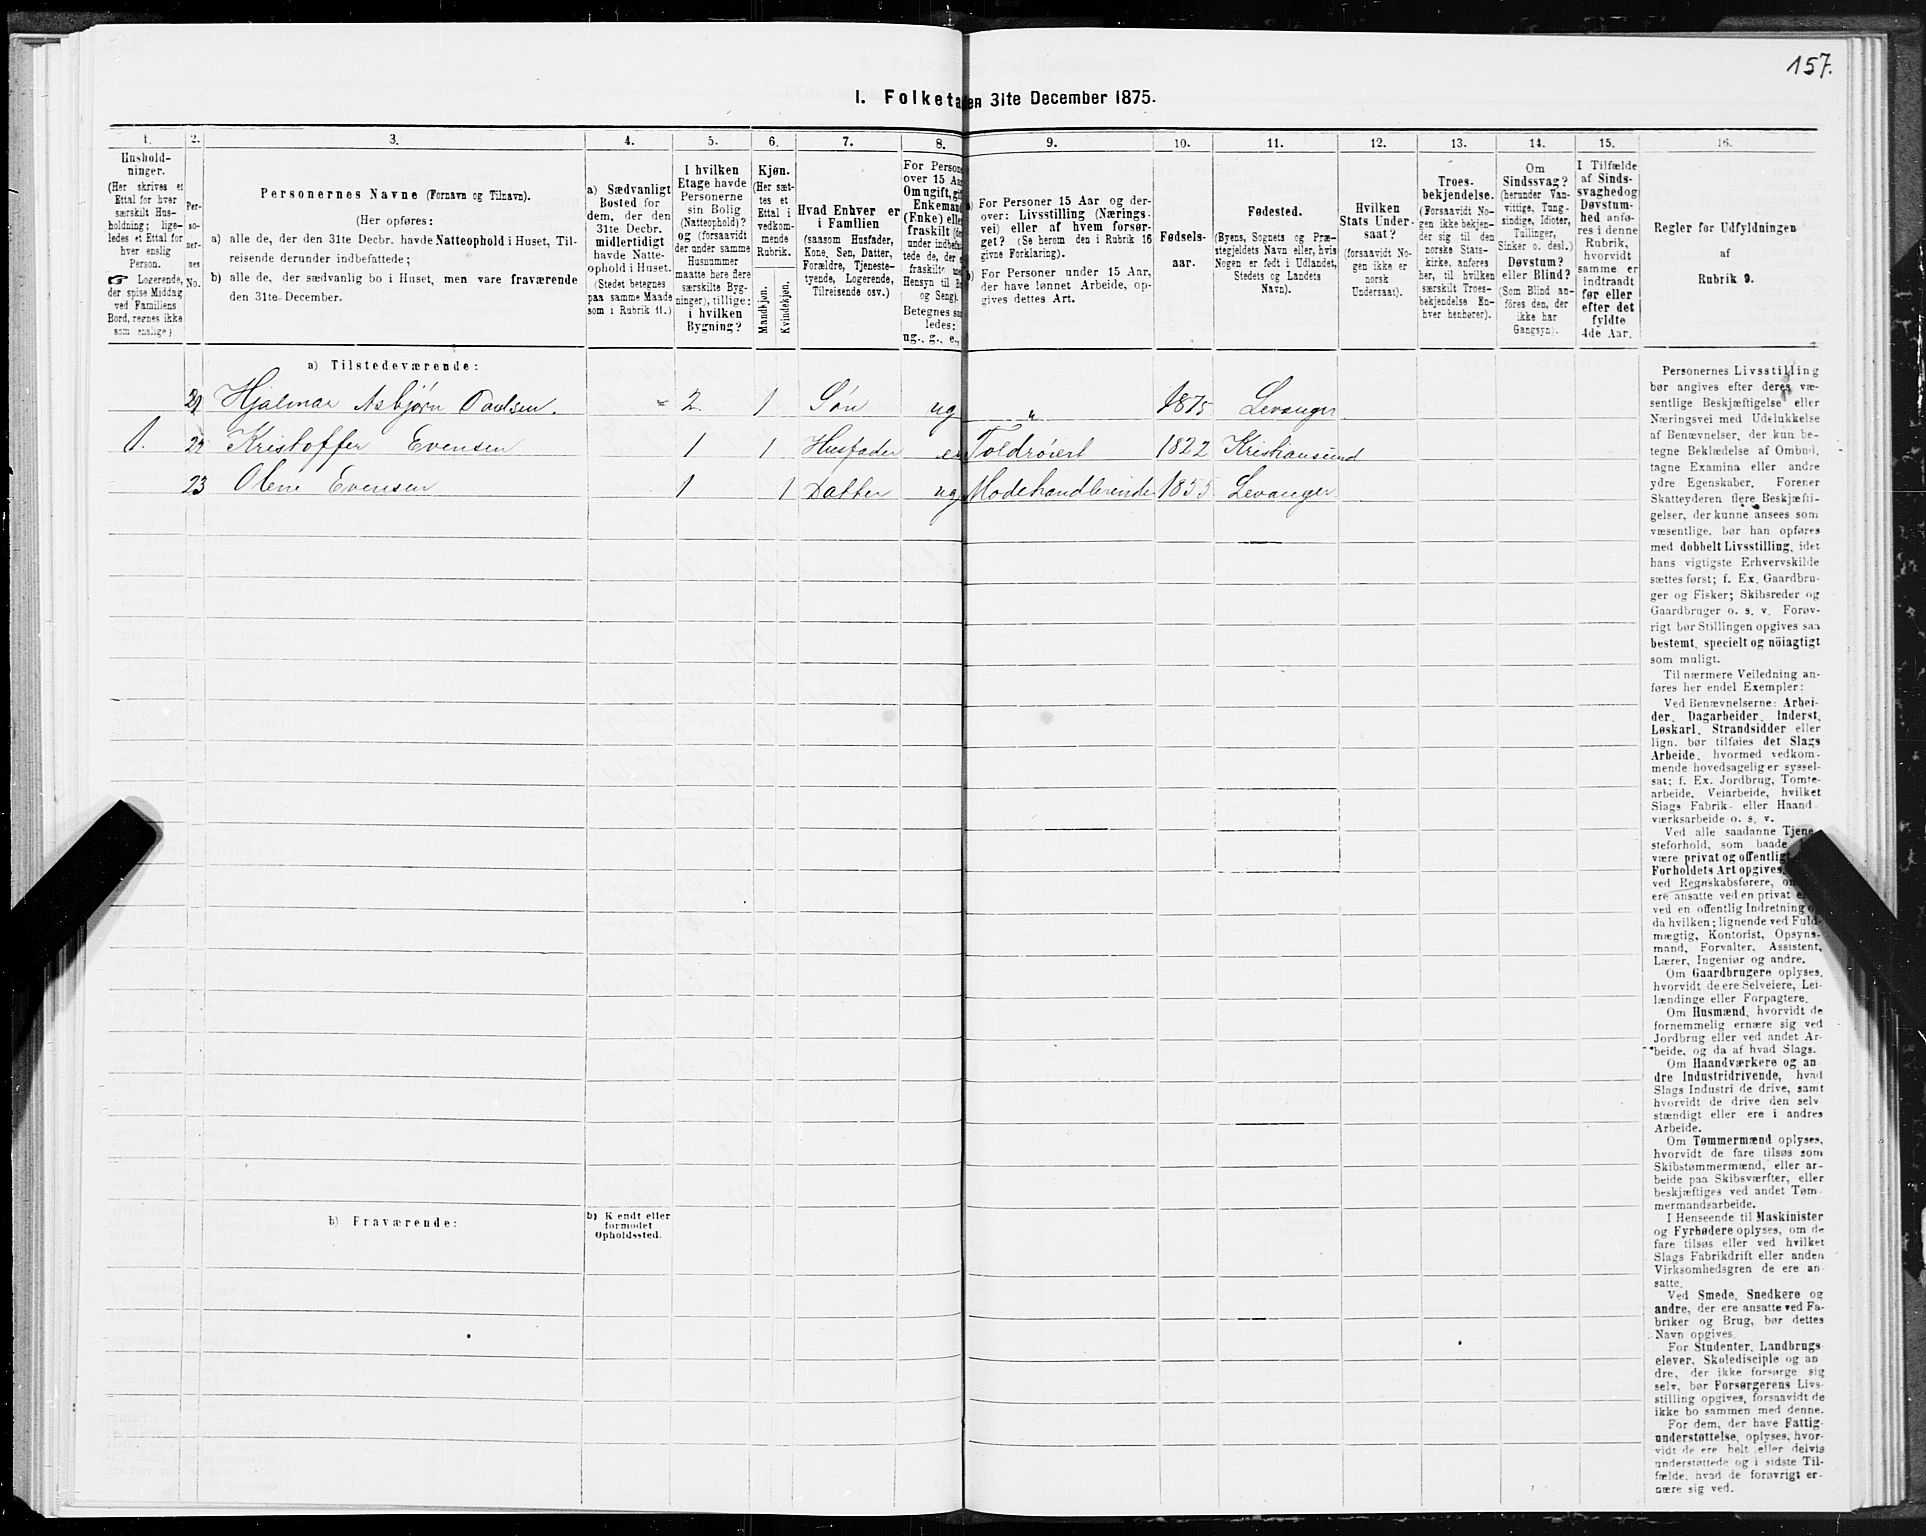 157.
I. Folketa en 31te December 1875.
1. 2. 3. 4. 5. 6. 7. 8. 9. 10. 11. 12. 13. 14. 15. 16.
Hushold-
ninger.
(Her skrives et
Ettal for hver
særskilt Hus-
holdning; lige-
ledes et Ettal for
hver enslig
Person.
☞ Logerende,
der spise Middag
ved Familiens
Bord, regnes ikke
som enslige)
Per-
so-
ner-
nes
No.
Personernes Navne (Fornavn og Tilnavn).
(Her opføres:
a) alle de, der den 31te Decbr. havde Natteophold i Huset, Til-
reisende derunder indbefattede;
b) alle de, der sædvanlig bo i Huset, men vare fraværende
den 31te December.
a) Sædvanligt
Bosted for
dem, der den
31te Decbr.
midlertidigt
havde Natte-
ophold i Huset.
(Stedet betegnes
paa samme Maade
som i Rubrik 11.)
I hvilken
Etage havde
Personerne
sin Bolig
(Natteophold)?
og (forsaavidt
der under samme
Husnummer
maatte høre flere
særskilte Byg-
ninger), tillige:
i hvilken
Bygning?
Kjøn.
(Her sæt-
tes et
Ettal i
vedkom-
mende
Rubrik.
Mandkjøn.
Kvindekjøn.
Hvad Enhver er
i Familien
(saasom Husfader,
Kone, Søn, Datter,
Forældre, Tjeneste-
tyende, Logerende,
Tilreisende osv.)
For Person
over 15 Aa
Om ugift, gi
Enkeman
(Enke) elle
fraskilt (de
under indbefa
tede de, der e
fraskilte me
Hensyn til B
og Seng).
Betegnes sa
ledes:
ug., g., e.,
a) For Personer 15 Aar og der-
over: Livsstilling (Nærings-
vei) eller af hvem forsør-
get? (Se herom den i Rubrik 16
givne Forklaring).
b) For Personer under 15 Aar,
der have lønnet Arbeide, op-
gives dettes Art.
Fødsels-
aar.
Fødested.
(Byens, Sognets og Præ-
stegjeldets Navn eller, hvis
Nogen er født i Udlandet,
Stedets og Landets
Navn).
Hvilken
Stats Under-
saat?
(forsaavidt No-
gen ikke er
norsk
Undersaat).
Troes-
bekjendelse.
(Forsaavidt No-
gen ikke bekjen-
der sig til den
norske Stats-
kirke, anføres
her, til hvilken
særskilt Troes-
bekjendelse En-
hver henhører).
Om
Sindssvag?
(herunder Van-
vittige, Tung-
sindige, Idioter,
Tullinger,
Sinker o. desl.)
Døvstum?
eller Blind?
(Som Blind an-
føres den, der
ikke har
Gangsyn).
I Tilfælde
af Sinds-
svaghed og
Døvstum-
hed anfø-
res i denne
Rubrik,
hvorvidt
samme er
indtraadt
før eller
efter det
fyldte
4de Aar.
Regler for Udfyldningen
af
Rubrik 9.
a) Tilstedeværende:
21 Hjalmar Asbjørn Paulsen. 2 1 Søn ug „ 1875 Levanger
1. 22 Kristoffer Evensen 1 1 Husfader e Toldrøiert 1822 Kristiansund
23 Olene Evensen 1 1 Datter ug Modehandlerinde 1855 Levanger
b) Fraværende:
b) Kjendt eller
formodet
Opholdssted.
Personernes Livsstilling
bør angives efter deres væ-
sentlige Beskjæftigelse eller
Næringsvei med Udelukkelse
af Benævnelser, der kun be-
tegne Beklædelse af Ombud,
tagne Examina eller andre
ydre Egenskaber. Forener
Skatteyderen flere Beskjæfti-
gelser, der kunne ansees som
væsentlige, bør han opføres
med dobbelt Livsstilling, idet
hans vigtigste Erhvervskilde
sættes først; f. Ex. Gaardbru-
ger og Fisker; Skibsreder og
Gaardbruger o. s. v. Forøv-
rigt bør Stillingen opgives saa
bestemt, specielt og nöiagtigt
som muligt.
Til nærmere Veiledning an-
føres her endel Exempler:
Ved Benævnelserne: Arbei-
der, Dagarbeider, Inderst,
Løskarl, Strandsidder eller
lign. bør tilføies det Slags
Arbeide, hvormed vedkom-
mende hovedsagelig er syssel-
sat; f. Ex. Jordbrug, Tomte-
arbeide, Veiarbeide, hvilket
Slags Fabrik- eller Haand-
værksarbeide o. s. v.
Ved alle saadanne Tjene-
steforhold, som baade
være privat og offentlig
Forholdets Art opgives,
ved Regnskabsførere, om
ere ansatte ved en privat el
ved en offentlig Indretning o
da hvilken; lignende ved Fuld-
mægtig, Kontorist, Opsyns-
mand, Forvalter, Assistent,
Lærer, Ingeniør og andre.
Om Gaardbrugere oplyses,
hvorvidt de ere Selveiere, Lei-
lændinge eller Forpagtere.
Om Husmænd, hvorvidt de
fornemmelig ernære sig ved
Jordbrug eller ved andet Ar-
beide, og da af hvad Slags.
Om Haandværkere og an-
dre Industridrivende, hvad
Slags Industri de drive, samt
hvorvidt de drive den selv-
stændigt eller ere i andres
Arbeide.
Om Tømmermænd oplyses,
hvorvidt de fare tilsøs som
Skibstømmermænd, eller ar-
beide paa Skibsværfter, eller
beskjæftiges ved andet Tøm-
mermandsarbeide.
I Henseende til Maskinister
og Fyrbødere oplyses, om de
fare tilsøs eller ved hvilket
Slags Fabrikdrift eller anden
Virksomhedsgren de ere an-
satte.
Ved Smede, Snedkere og
andre, der ere ansatte ved Fa-
briker og Brug, bør dettes
Navn opgives.
For Studenter, Landbrugs-
elever, Skoledisciple og an-
dre, der ikke forsørge sig
selv, bør Forsørgerens Livs-
stilling opgives, forsaavidt de
ikke bo sammen med denne.
For dem, der have Fattig-
understøttelse, oplyses, hvor-
vidt de ere helt eller delvis
understøttede og i sidste Til-
fælde, hvad de forøvrigt er-
nære sig ved.